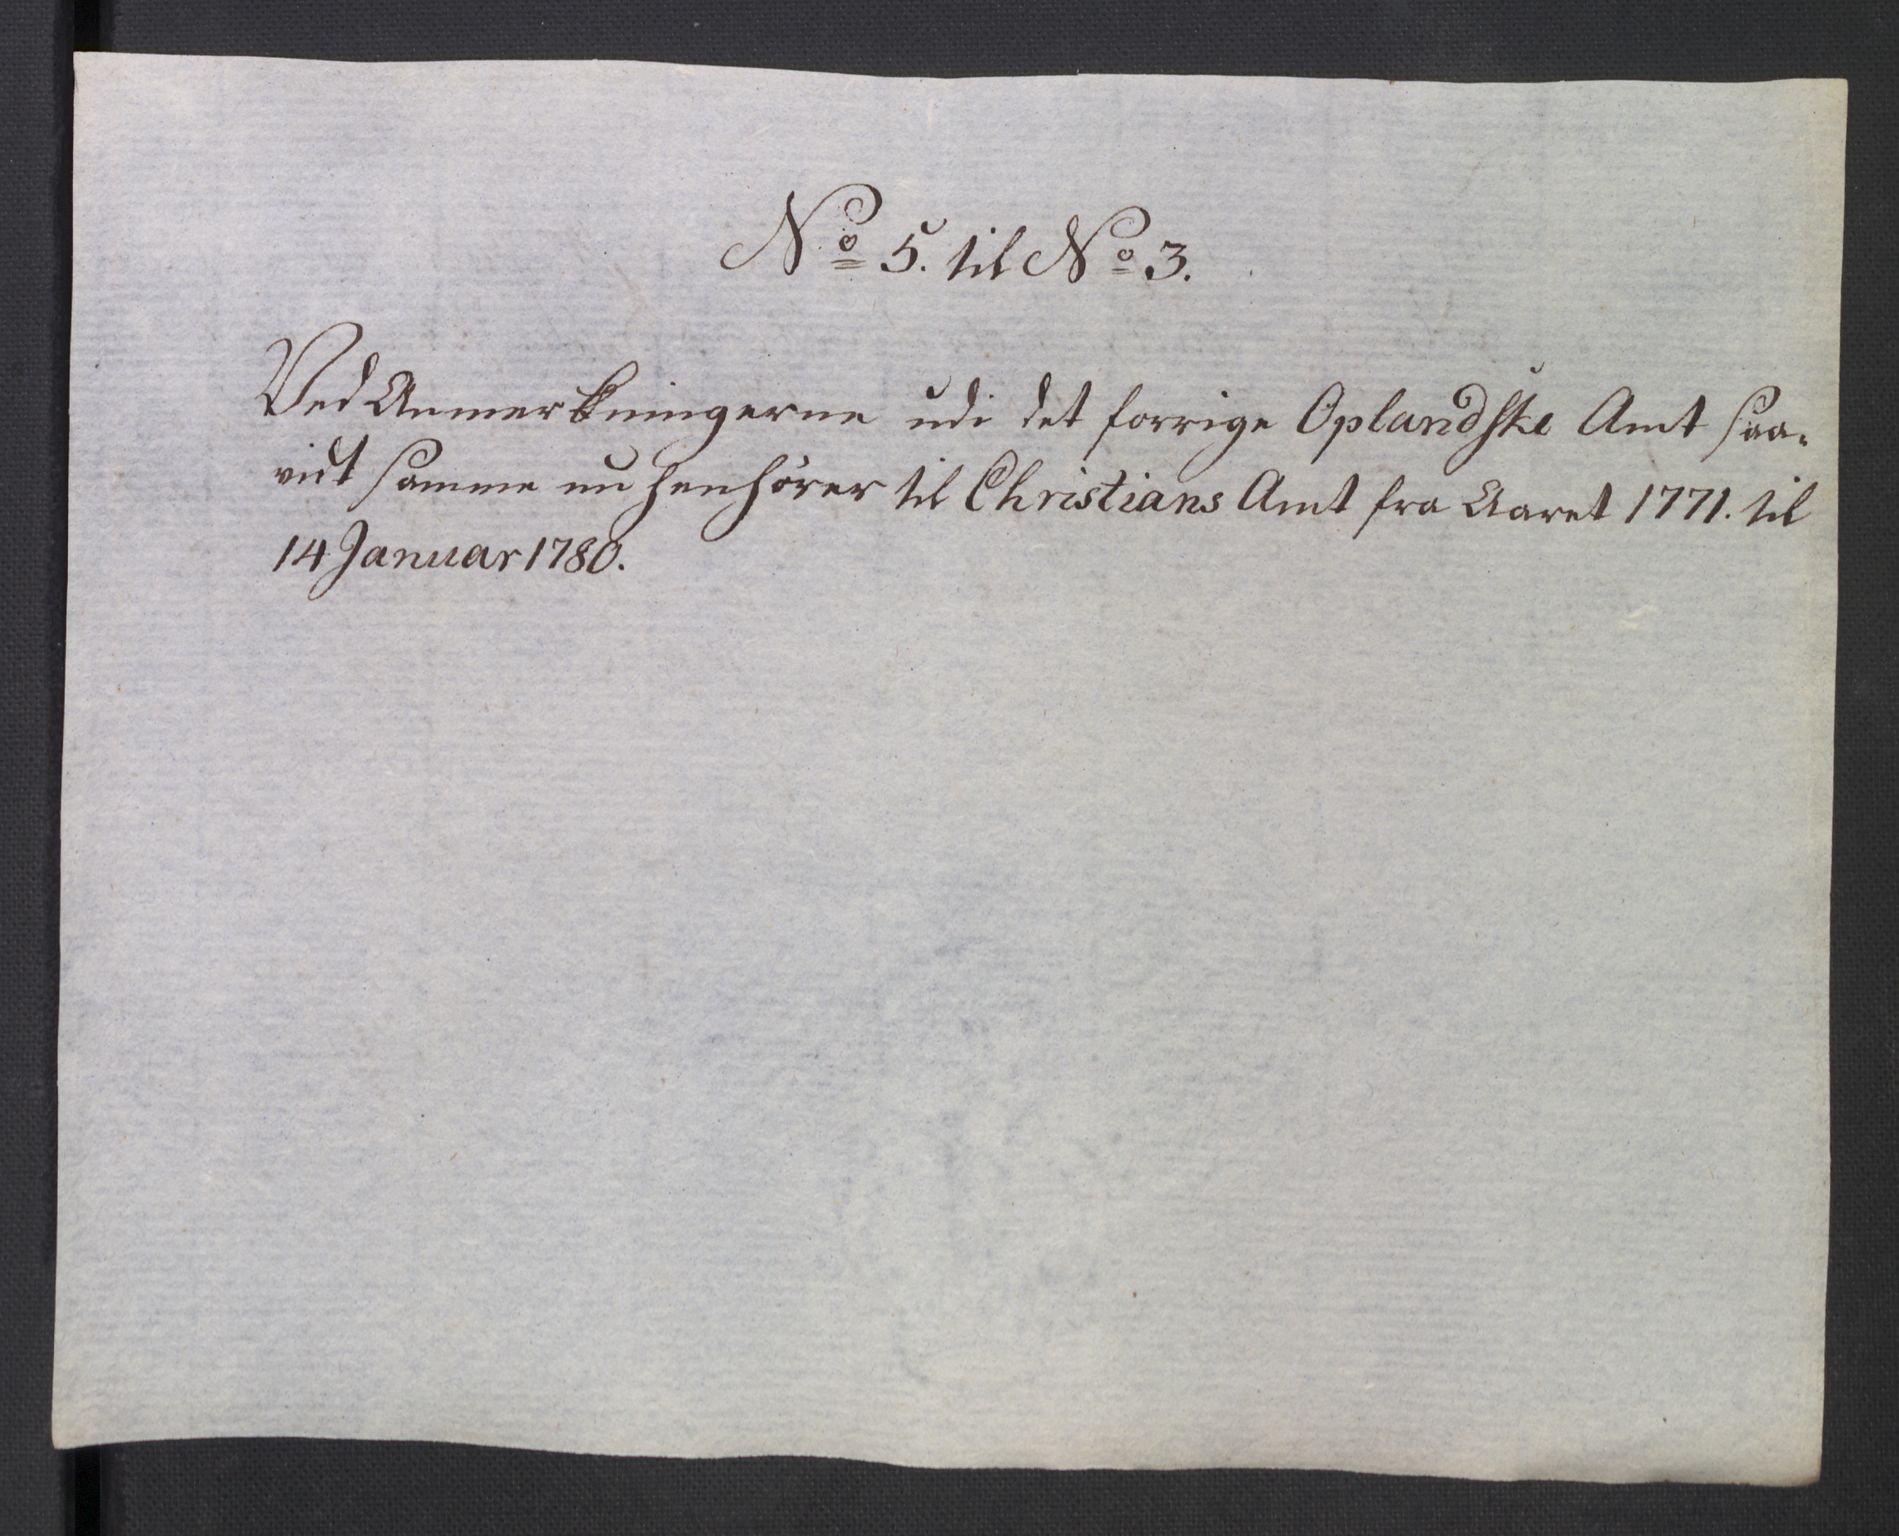 No 5. til No 3.
Ved Anmerkningerne udi det forrige Oplandske Amt saa-
vidt samme nu henhörer til Christians Amt fra Aaret 1771. til
14 Januar 1780.